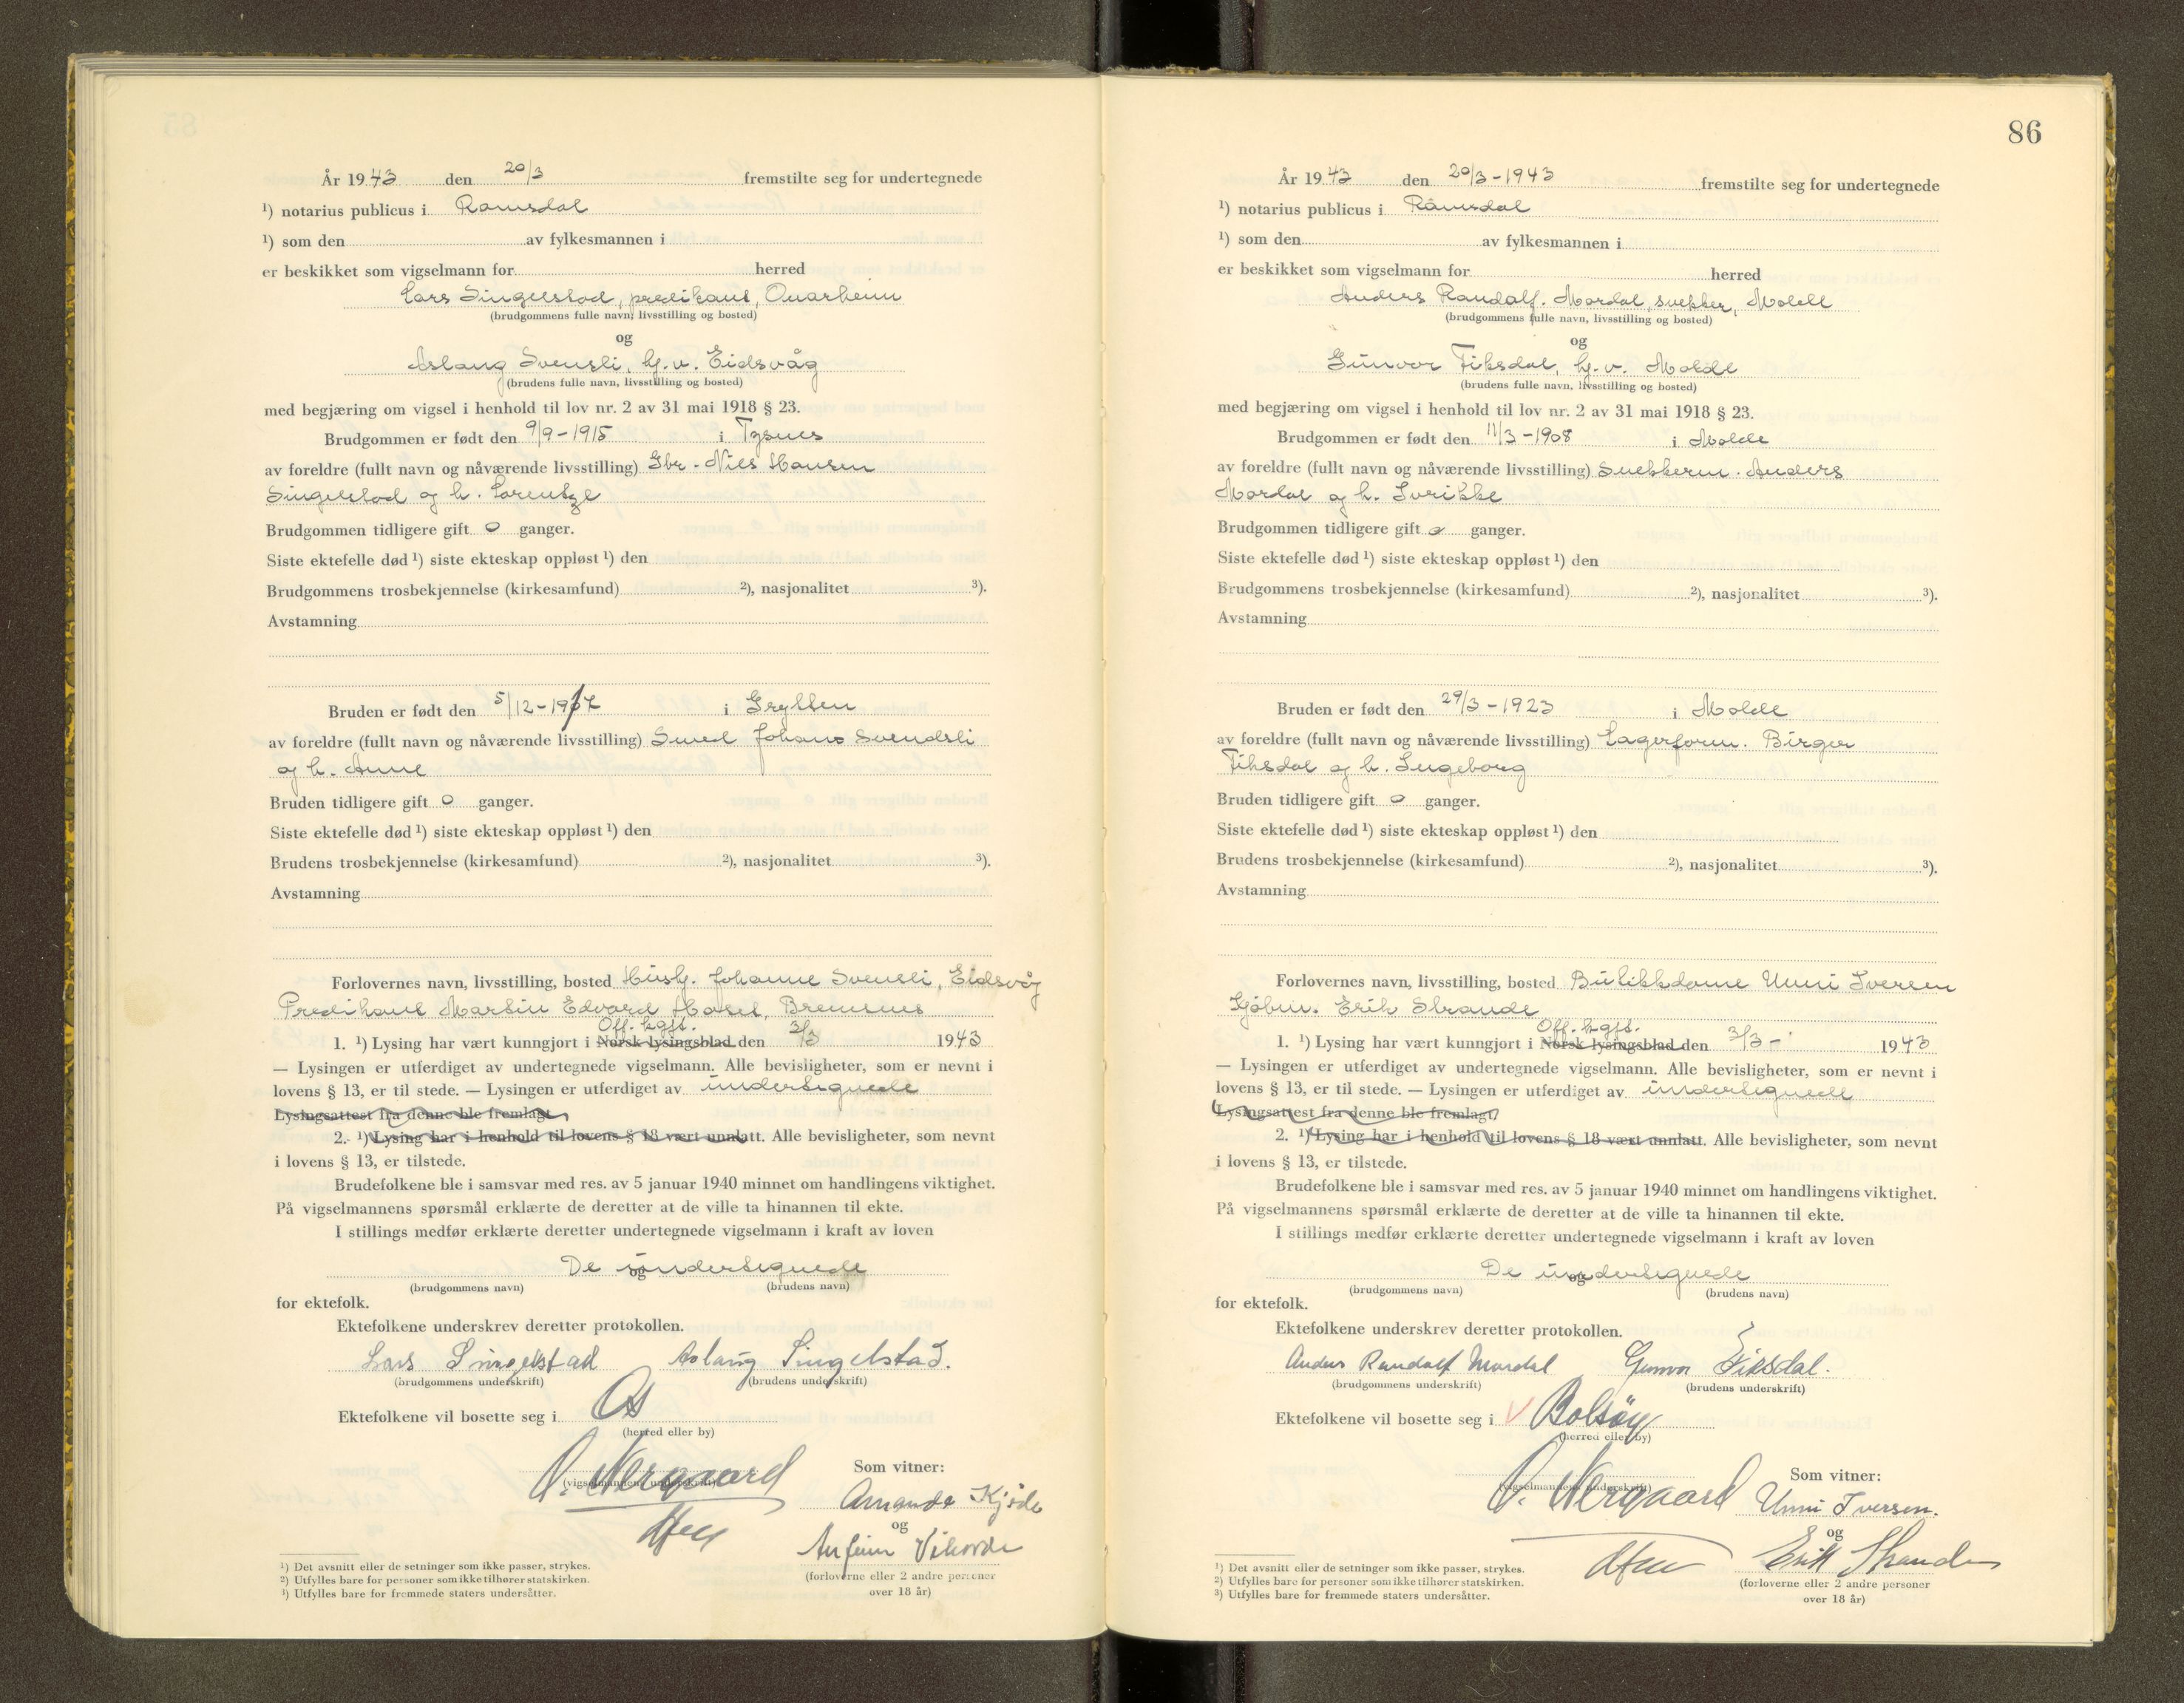 År 1943 den 20/3 fremstilte seg for undertegnede
¹) notarius publicus i Romsdal
¹) som den av fylkesmannen i
er beskikket som vigselmann for herred
Lars Singelstad, predikant, Onarheim
(brudgommens fulle navn, livsstilling og bosted)
og
Aslaug Svensli, hj.v. Eidsvåg
(brudens fulle navn, livsstilling og bosted)
med begjæring om vigsel i henhold til lov nr. 2 av 31 mai 1918 § 23.
Brudgommen er født den 9/9-1915 i Tysnes
av foreldre (fullt navn og nåværende livsstilling) Gbr. Nils Hansen
Singelstad og h. Lorentze
Brudgommen tidligere gift 0 ganger.
Siste ektefelle død ¹) siste ekteskap oppløst ¹) den
Brudgommens trosbekjennelse (kirkesamfund) ²), nasjonalitet ³).
Avstamning
Bruden er født den 5/12-1917 i Grytten
av foreldre (fullt navn og nåværende livsstilling) Smed Johans Svendsli
og h. Anne
Bruden tidligere gift 0 ganger.
Siste ektefelle død ¹) siste ekteskap oppløst ¹) den
Brudens trosbekjennelse (kirkesamfund) ²), nasjonalitet ³).
Avstamning
Forlovernes navn, livsstilling, bosted Hush. Johanne Svensli, Eidsvåg
Predikant Martin Edvard Hasel, Bremsnes
Off. kgjt.
1. ¹) Lysing har vært kunngjort i Norsk lysingsblad den 3/3 1943
— Lysingen er utferdiget av undertegnede vigselmann. Alle bevisligheter, som er nevnt i
lovens § 13, er til stede. — Lysingen er utferdiget av undertegnede
Lysingsattest fra denne ble fremlagt.
2. ¹) Lysing har i henhold til lovens § 18 vært unnlatt. Alle bevisligheter, som nevnt
i lovens § 13, er tilstede.
Brudefolkene ble i samsvar med res. av 5 januar 1940 minnet om handlingens viktighet.
På vigselmannens spørsmål erklærte de deretter at de ville ta hinannen til ekte.
I stillings medfør erklærte deretter undertegnede vigselmann i kraft av loven
De undertegnede
og
(brudgommens navn) (brudens navn)
for ektefolk.
Ektefolkene underskrev deretter protokollen.
Lars Singelstad Aslaug Singelstad.
(brudgommens underskrift) (brudens underskrift)
Ektefolkene vil bosette seg i Os
(herred eller by)
O. Nergaard
(vigselmannens underskrift)
Som vitner:
Amanda Kjøde
og
Anfinn Vihovde
(forloverne eller 2 andre personer
over 18 år)
¹) Det avsnitt eller de setninger som ikke passer, strykes.
²) Utfylles bare for personer som ikke tilhører statskirken.
³) Utfylles bare for fremmede staters undersåtter.
86
År 1943 den 20/3-1943 fremstilte seg for undertegnede
¹) notarius publicus i Romsdal
¹) som den av fylkesmannen i
er beskikket som vigselmann for herred
Anders Randolf. Mordal, snekker, Molde
(brudgommens fulle navn, livsstilling og bosted)
og
Gunvor Fiksdal, hj.v. Molde
(brudens fulle navn, livsstilling og bosted)
med begjæring om vigsel i henhold til lov nr. 2 av 31 mai 1918 § 23.
Brudgommen er født den 11/3-1908 i Molde
av foreldre (fullt navn og nåværende livsstilling) Snekkerm. Anders
Mordal og h. Iverikke
Brudgommen tidligere gift 0 ganger.
Siste ektefelle død ¹) siste ekteskap oppløst ¹) den
Brudgommens trosbekjennelse (kirkesamfund) ²), nasjonalitet ³).
Avstamning
Bruden er født den 29/3-1923 i Molde
av foreldre (fullt navn og nåværende livsstilling) Lagerform. Birger
Fiksdal og h. Ingeborg
Bruden tidligere gift 0 ganger.
Siste ektefelle død ¹) siste ekteskap oppløst ¹) den
Brudens trosbekjennelse (kirkesamfund) ²), nasjonalitet ³).
Avstamning
Forlovernes navn, livsstilling, bosted Butikkdame Unni Iversen
Kjøbm. Erik Strande
Off. kgjt.
1. ¹) Lysing har vært kunngjort i Norsk lysingsblad den 3/3- 1943
— Lysingen er utferdiget av undertegnede vigselmann. Alle bevisligheter, som er nevnt i
lovens § 13, er til stede. — Lysingen er utferdiget av undertegnede
Lysingsattest fra denne ble fremlagt.
2. ¹) Lysing har i henhold til lovens § 18 vært unnlatt. Alle bevisligheter, som nevnt
i lovens § 13, er tilstede.
Brudefolkene ble i samsvar med res. av 5 januar 1940 minnet om handlingens viktighet.
På vigselmannens spørsmål erklærte de deretter at de ville ta hinannen til ekte.
I stillings medfør erklærte deretter undertegnede vigselmann i kraft av loven
De undertegnede
og
(brudgommens navn) (brudens navn)
for ektefolk.
Ektefolkene underskrev deretter protokollen.
Anders Randolf Mordal Gunvor Fiksdal.
(brudgommens underskrift) (brudens underskrift)
Ektefolkene vil bosette seg i V Bolsøy
(herred eller by)
O. Nergaard
(vigselmannens underskrift)
Som vitner:
Unni Iversen.
og
Erik Strande
(forloverne eller 2 andre personer
over 18 år)
¹) Det avsnitt eller de setninger som ikke passer, strykes.
²) Utfylles bare for personer som ikke tilhører statskirken.
³) Utfylles bare for fremmede staters undersåtter.